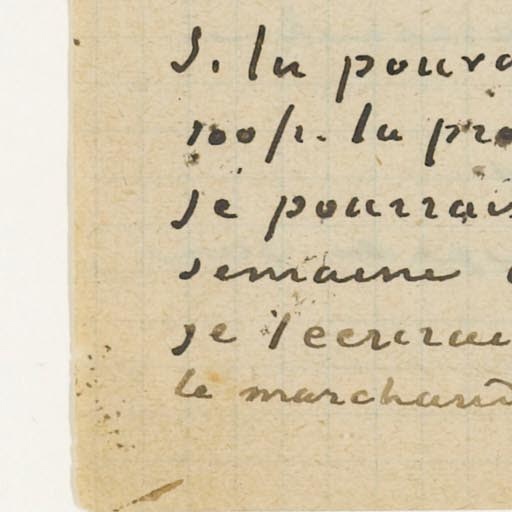 Si tu pourra
100 fr. tu pro
je pourrais
semaine
je t'ecrirai
le marchand